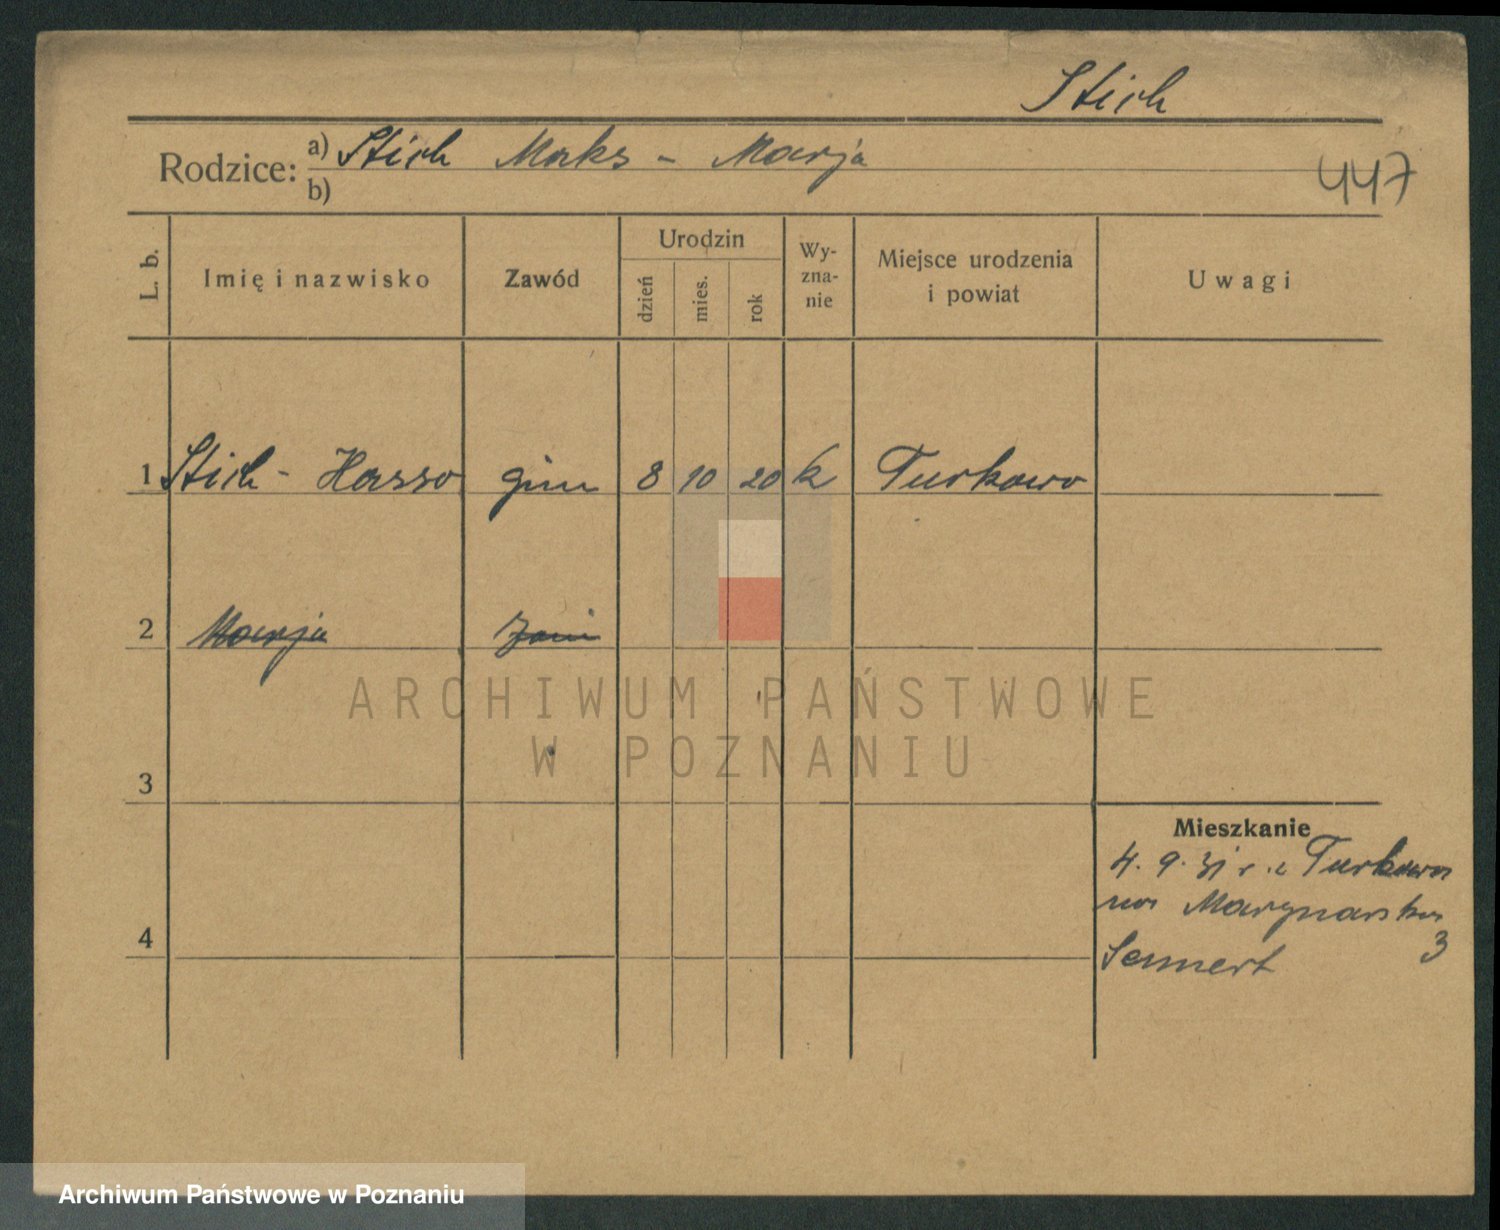 Stich
Rodzice: a) Stich Maks - Marja
b)
447
L. b.
Imię i nazwisko
Zawód
Urodzin
dzień
mies.
rok
Wy-
zna-
nie
Miejsce urodzenia
i powiat
Uwagi
1 Stich - Hasso gim 8 10 20 k Turkowo
2 Marja
3
4
Mieszkanie
4. 9. 31 r. z Turkowa
na Marynarska
3
Sennert
ARCHIWUM PAŃSTWOWE
W POZNANIU
Archiwum Państwowe w Poznaniu